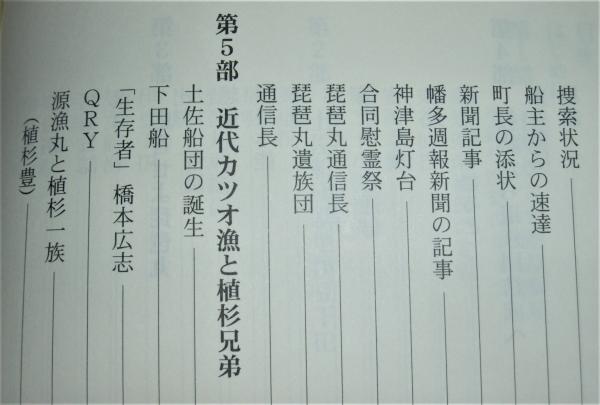 捜索状況
船主からの速達
町長の添状
新聞記事
幡多週報新聞の記事
神津島灯台
合同慰霊祭
琵琶丸通信長
琵琶丸遺族団
通信長
第5部 近代カツオ漁と植杉兄弟
土佐船団の誕生
下田船
「生存者」橋本広志
QRY
源漁丸と植杉一族
(植杉豊)